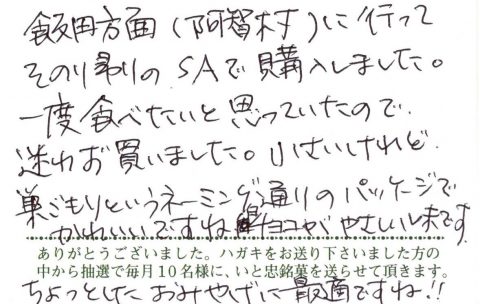 飯田方面(阿智村)に行って
その帰りのSAで購入しました。
一度食べたいと思っていたので
迷わお買いました。小さいけれど
巣ごもりというネーミング通りのパッケージで
かわいいですね チョコがやさしい味です
ありがとうございました。ハガキをお送り下さいました方の
中から抽選で毎月10名様に、いと忠銘菓を送らせて頂きます。
ちょっとした おみやげに最適ですね!!